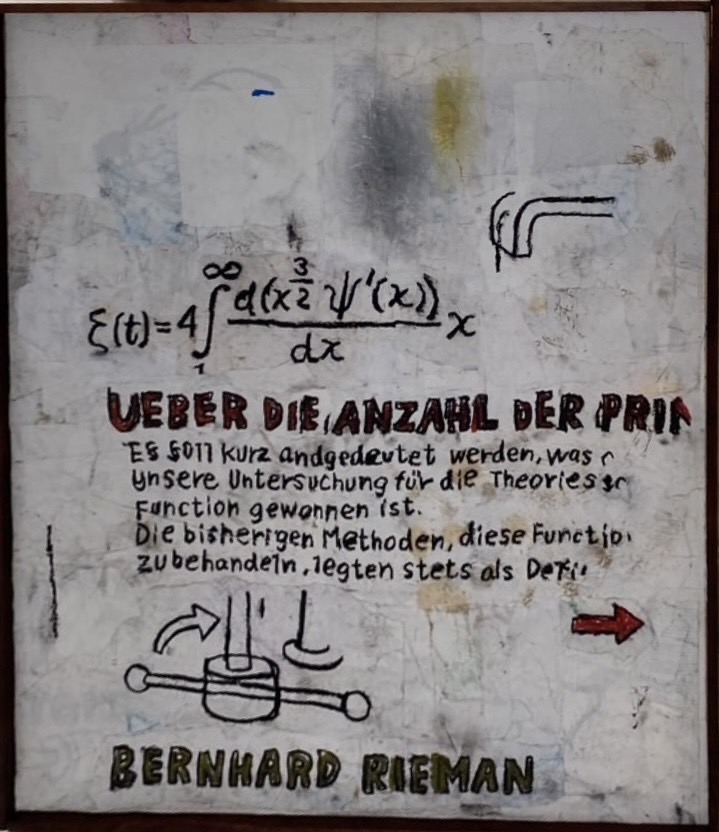 ξ(t)=4∫₁^∞ d(x^{3/2} ψ'(x))/dx x
UEBER DIE, ANZAHL DER PRIM
ES SOll kurz andgedeutet werden, was
Unsere Untersuchung für die Theories
Function gewonnen ist.
Die bisherigen Methoden, diese Functio
zubehandeln, legten stets als
BERNHARD RIEMAN